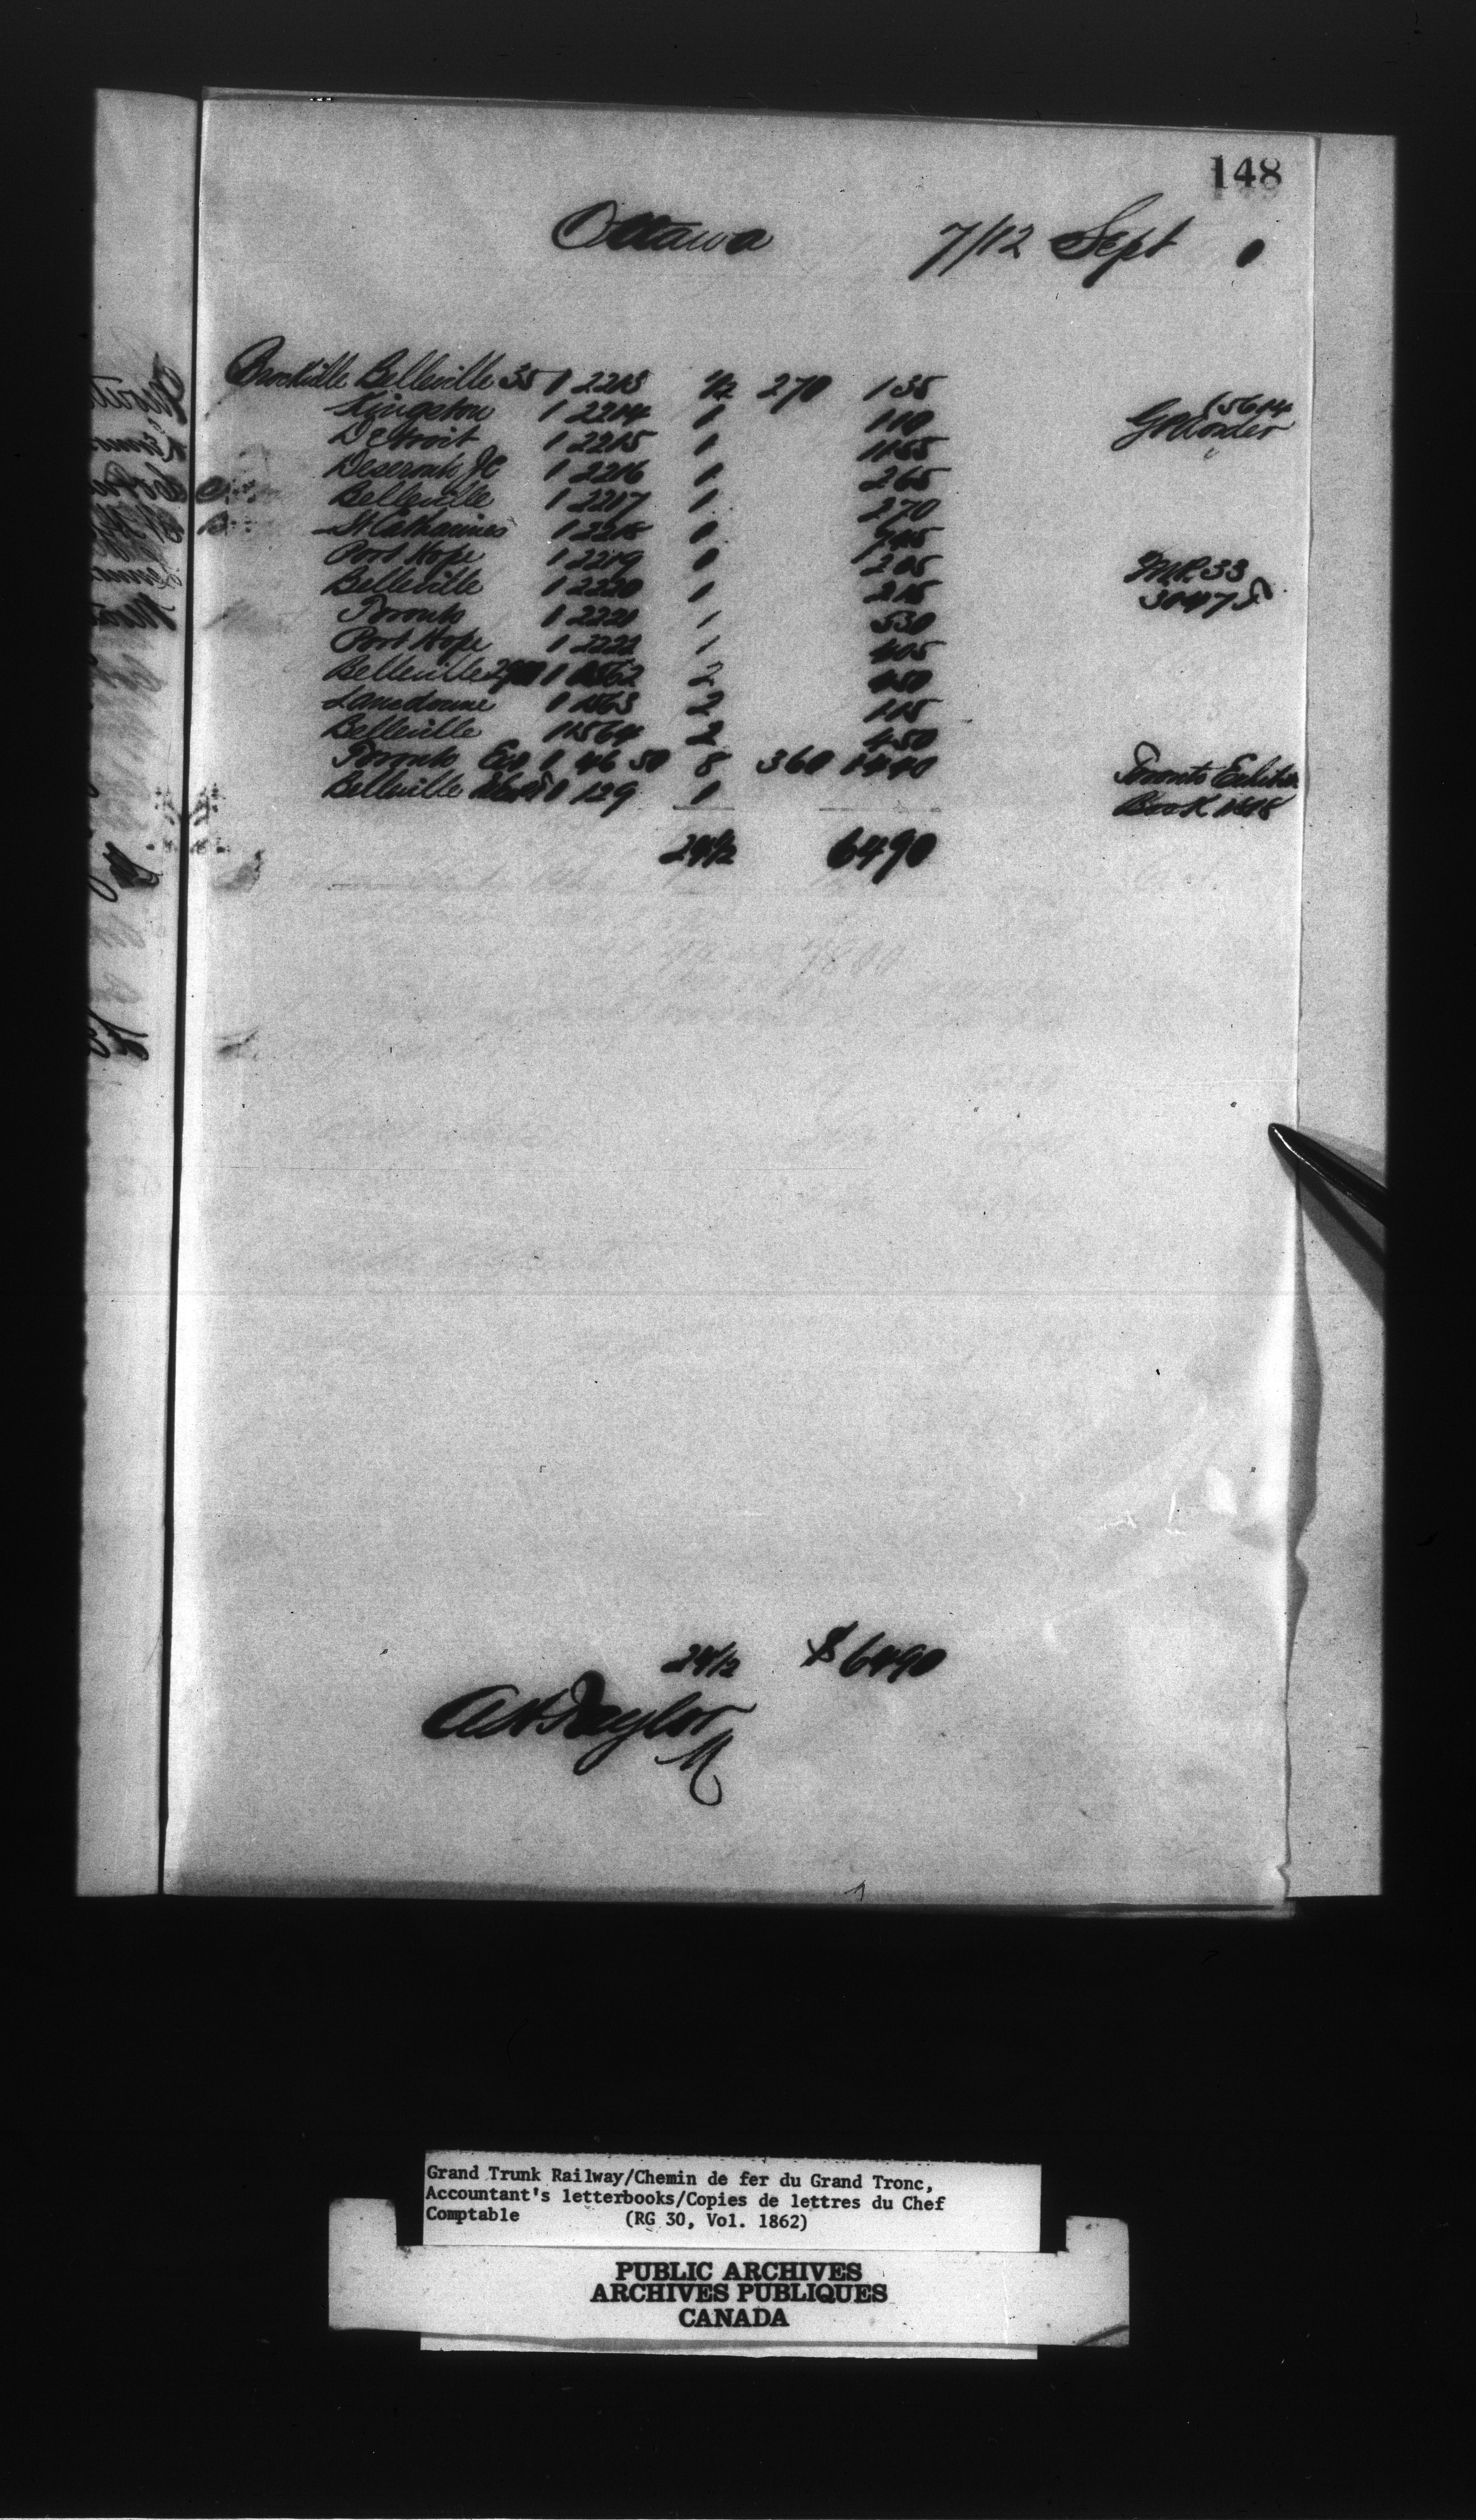 148
Ottawa 7/12 Sept
Brockville Belleville 35 1 2213 1/2 270 135
Kingston 1 2214 1 110 15614
Detroit 1 2215 1 1155 GN Order
Deseronto Jc 1 2216 1 265
Belleville 1 2217 1 270
St Catharines 1 2218 1
Port Hope 1 2219 1 205
Belleville 1 2220 1 215 33
Toronto 1 2221 1 530 30475
Port Hope 1 2222 1 405
Belleville 1 2 450
Lansdowne 1 1563 2 115
Belleville 1 1564 2 450
Toronto 1 46 50 8 360 1440 Toronto Exhibn
Belleville 1 129 1 Book
24 1/2 6490
24 1/2 $6490
A H Taylor
M
Grand Trunk Railway/Chemin de fer du Grand Tronc,
Accountant's letterbooks/Copies de lettres du Chef
Comptable (RG 30, Vol. 1862)
PUBLIC ARCHIVES
ARCHIVES PUBLIQUES
CANADA